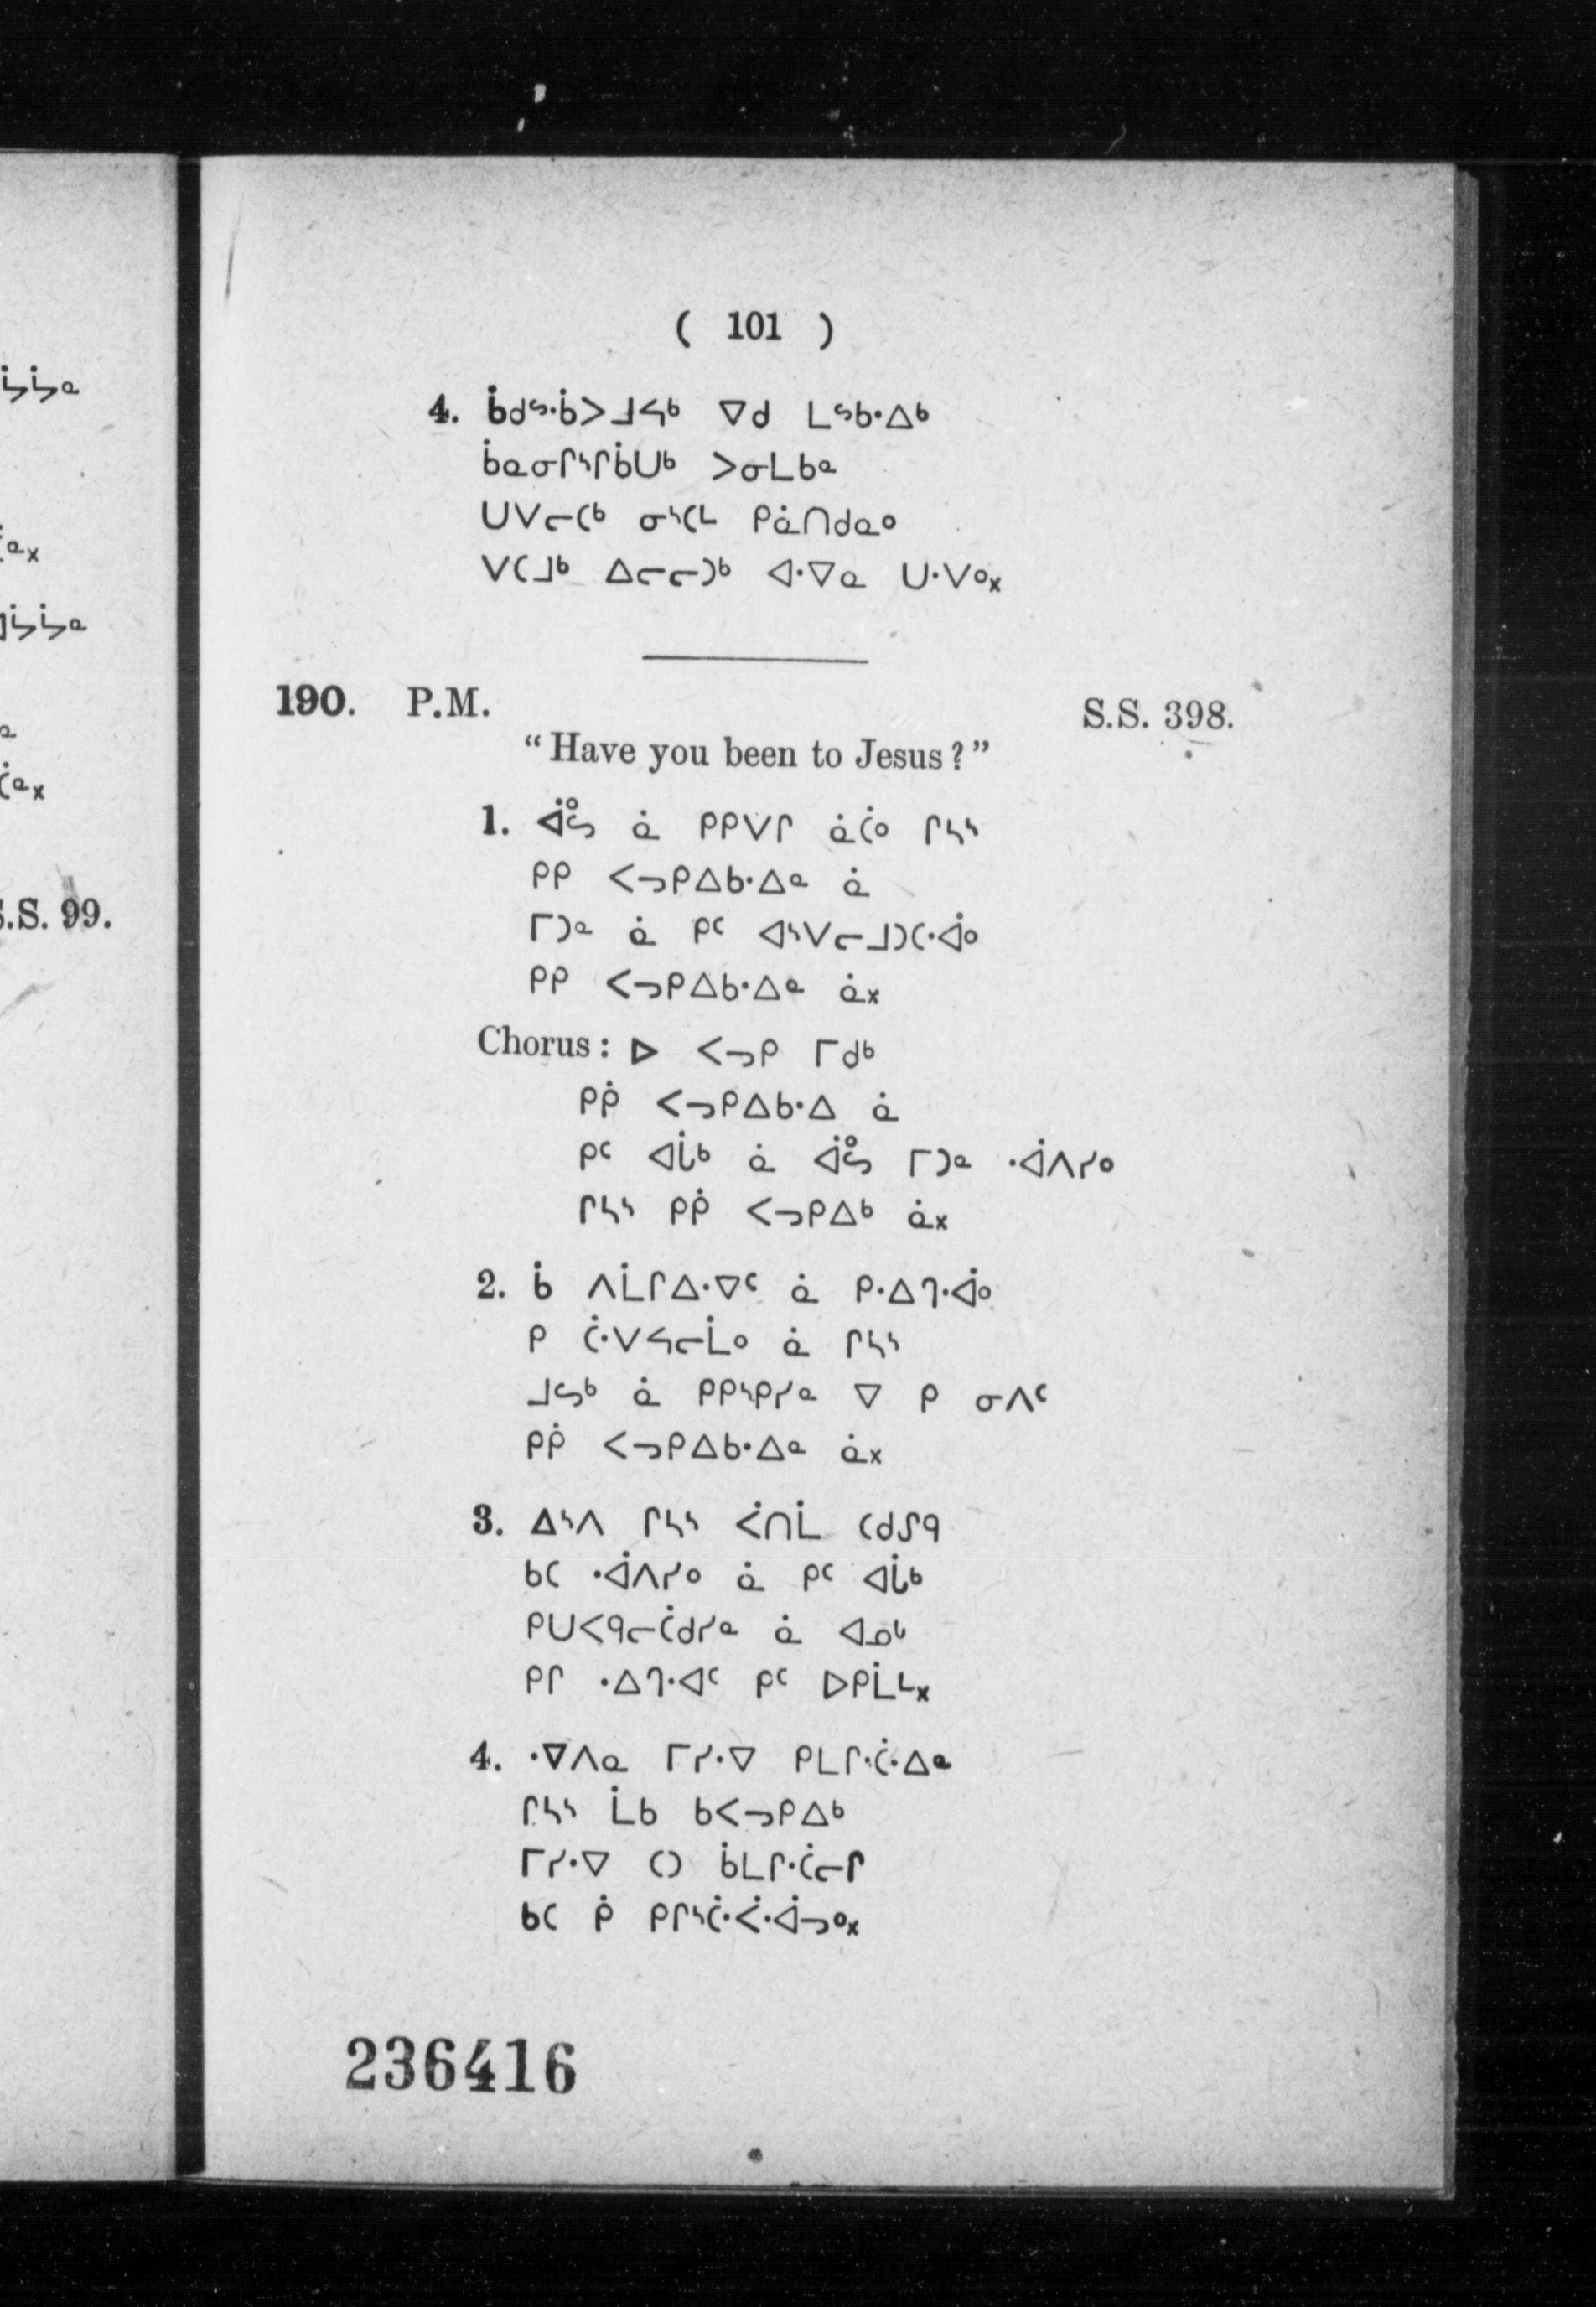 ( 101 )
4. ᑳᑯᔥᑳᐳᒧᓴᒃ ᐁᑯ ᒪᔥᑲᐧᐃᒃ
ᑳᓇᓂᒋᔅᒋᑳᑌᒃ ᐳᓂᒪᑲᓐ
ᑌᐯᓕᑕᒃ ᓂᔅᑕᒻ ᑭᓈᑎᑯᓇᐤ
ᐯᑕᒧᒃ ᐃᓕᓕᑐᒃ ᐊᐧᐁᓇ ᑌᐧᐯᐤ᙮
190. P.M. S.S. 398.
“Have you been to Jesus?”
1. ᐋᐤᔑ ᓈ ᑭᑭᐯᒋ ᓈᑖᐤ ᒋᓴᔅ
ᑭᑭ ᐸᓗᑭᐃᑲᐧᐃᓐ ᓈ
ᒥᑐᓐ ᓈ ᑭᑦ ᐊᔅᐯᓕᒧᑐᑕᐧᐋᐤ
ᑭᑭ ᐸᓗᑭᐃᑲᐧᐃᓐ ᓈ᙮
Chorus: ᐅ ᐸᓗᑭ ᒥᑯᒃ
ᑭᑮ ᐸᓗᑭᐃᑲᐧᐃ ᓈ
ᑭᑦ ᐊᒑᒃ ᓈ ᐋᐤᔑ ᒥᑐᓐ ᐧᐋᐱᓯᐤ
ᒋᓴᔅ ᑭᑮ ᐸᓗᑭᐃᒃ ᓈ᙮
2. ᑳ ᐱᒫᒋᐃᐧᐁᑦ ᓈ ᑭᐧᐃᒉᐧᐋᐤ
ᑭ ᑖᐧᐯᓴᓕᒫᐤ ᓈ ᒋᓴᔅ
ᒧᔕᒃ ᓈ ᑭᑭᔅᑭᓯᓐ ᐁ ᑭ ᓂᐱᑦ
ᑭᑮ ᐸᓗᑭᐃᑲᐧᐃᓐ ᓈ᙮
3. ᐃᔅᐱ ᒋᓴᔅ ᐹᑎᒫ ᑕᑯᔑᑫ
ᑲᑕ ᐧᐋᐱᓯᐤ ᓈ ᑭᑦ ᐊᒑᒃ
ᑭᑌᐸᑫᓕᑖᑯᓯᓐ ᓈ ᐊᓄᒡ
ᑭᒋ ᐧᐃᒉᐧᐊᑦ ᑭᑦ ᐅᑭᒫᒻ᙮
4. ᐧᐁᐱᓇ ᒥᓯᐧᐁ ᑭᒪᒋᐧᑖᐧᐃᓐ
ᒋᓴᔅ ᒫᑲ ᑲᐸᓗᑭᐃᒃ
ᒥᓯᐧᐁ ᑕᑐ ᑳᒪᒋᐧᑖᓕᒋ
ᑲᑕ ᑮ ᑭᒋᔅᑖᐧᐹᐧᐋᓗᐤ᙮
236416